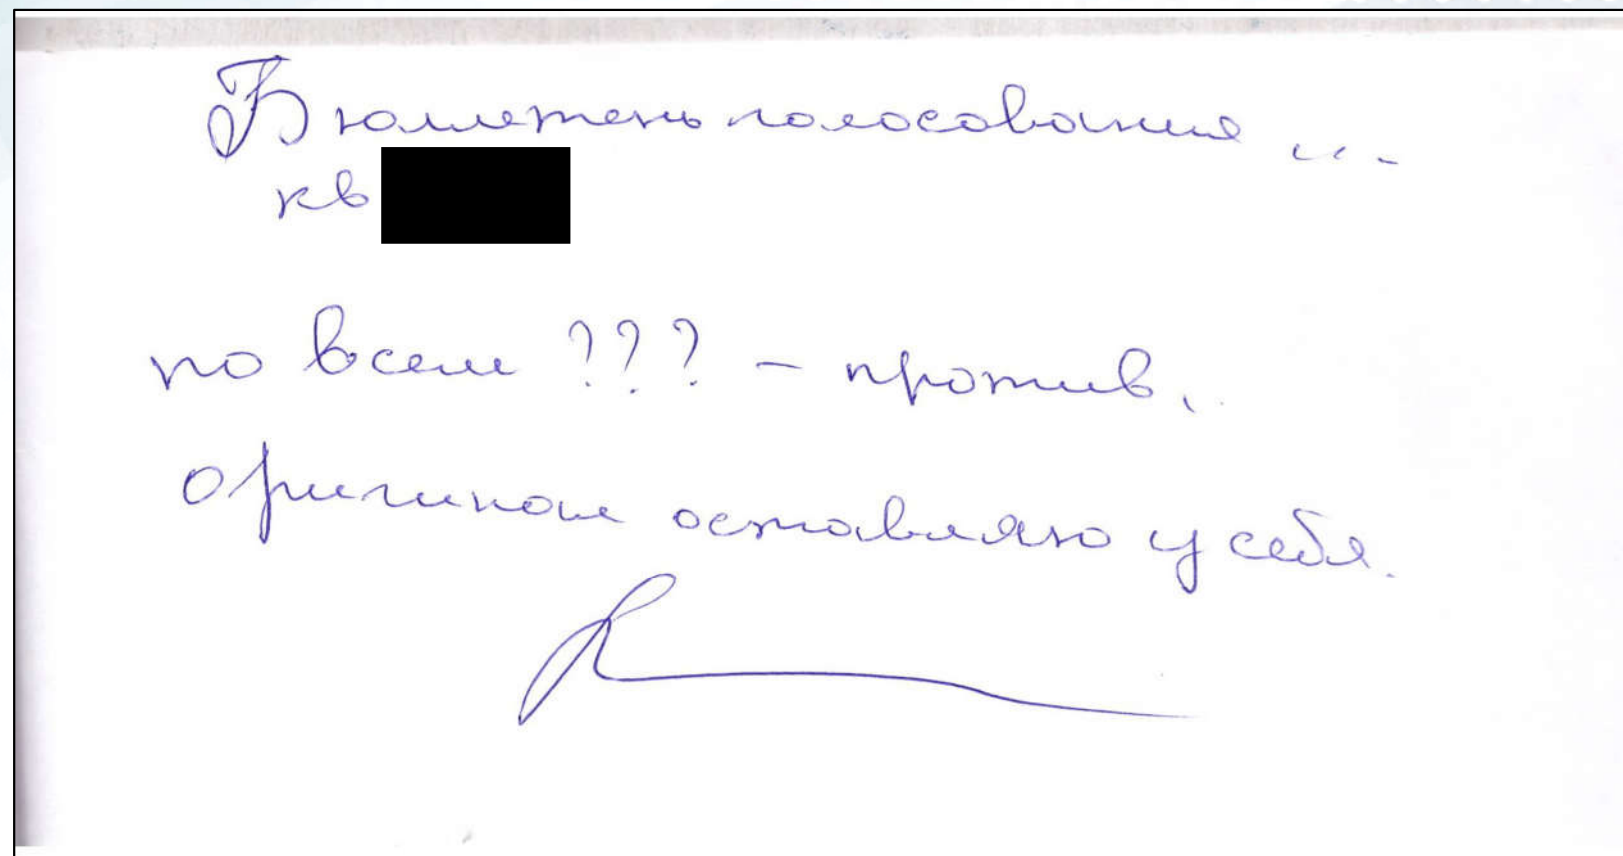 Бюллетень голосования ...
кв
по всем ??? - против.
оригинал оставляю у себя.